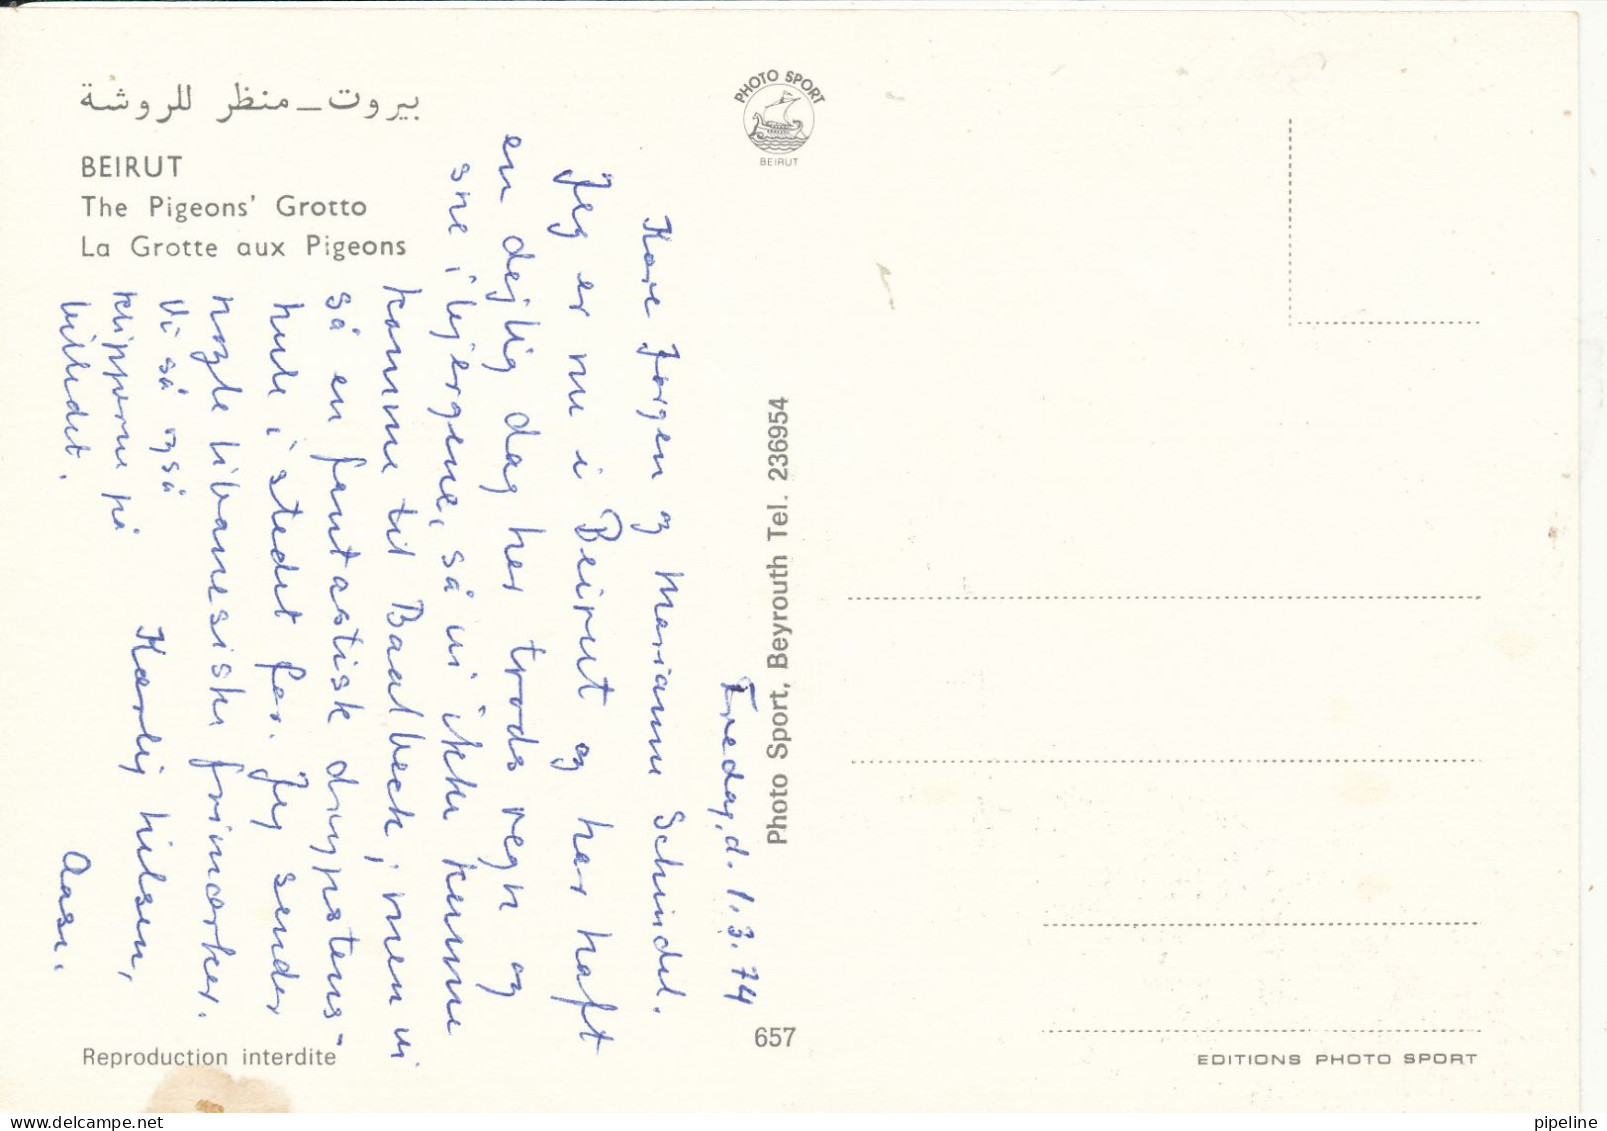 بيروت – منظر للروشة
BEIRUT
The Pigeons' Grotto
La Grotte aux Pigeons
PHOTO SPORT
BEIRUT
Fredag, d. 1.3.74
Kære Jørgen og Marianne Schindel.
Jeg er nu i Beirut og har haft
en dejlig dag her trods regn og
sne i bjergene, så vi ikke kunne
komme til Baalbeck; men vi
så en fantastisk drypstens-
hule i stedet for. Jeg sender
nogle libanesiske frimærker.
Vi så også
klipperne på
billedet.
Kærlig hilsen,
Aase.
Photo Sport, Beyrouth Tel. 236954
657
Reproduction interdite
EDITIONS PHOTO SPORT
pipeline